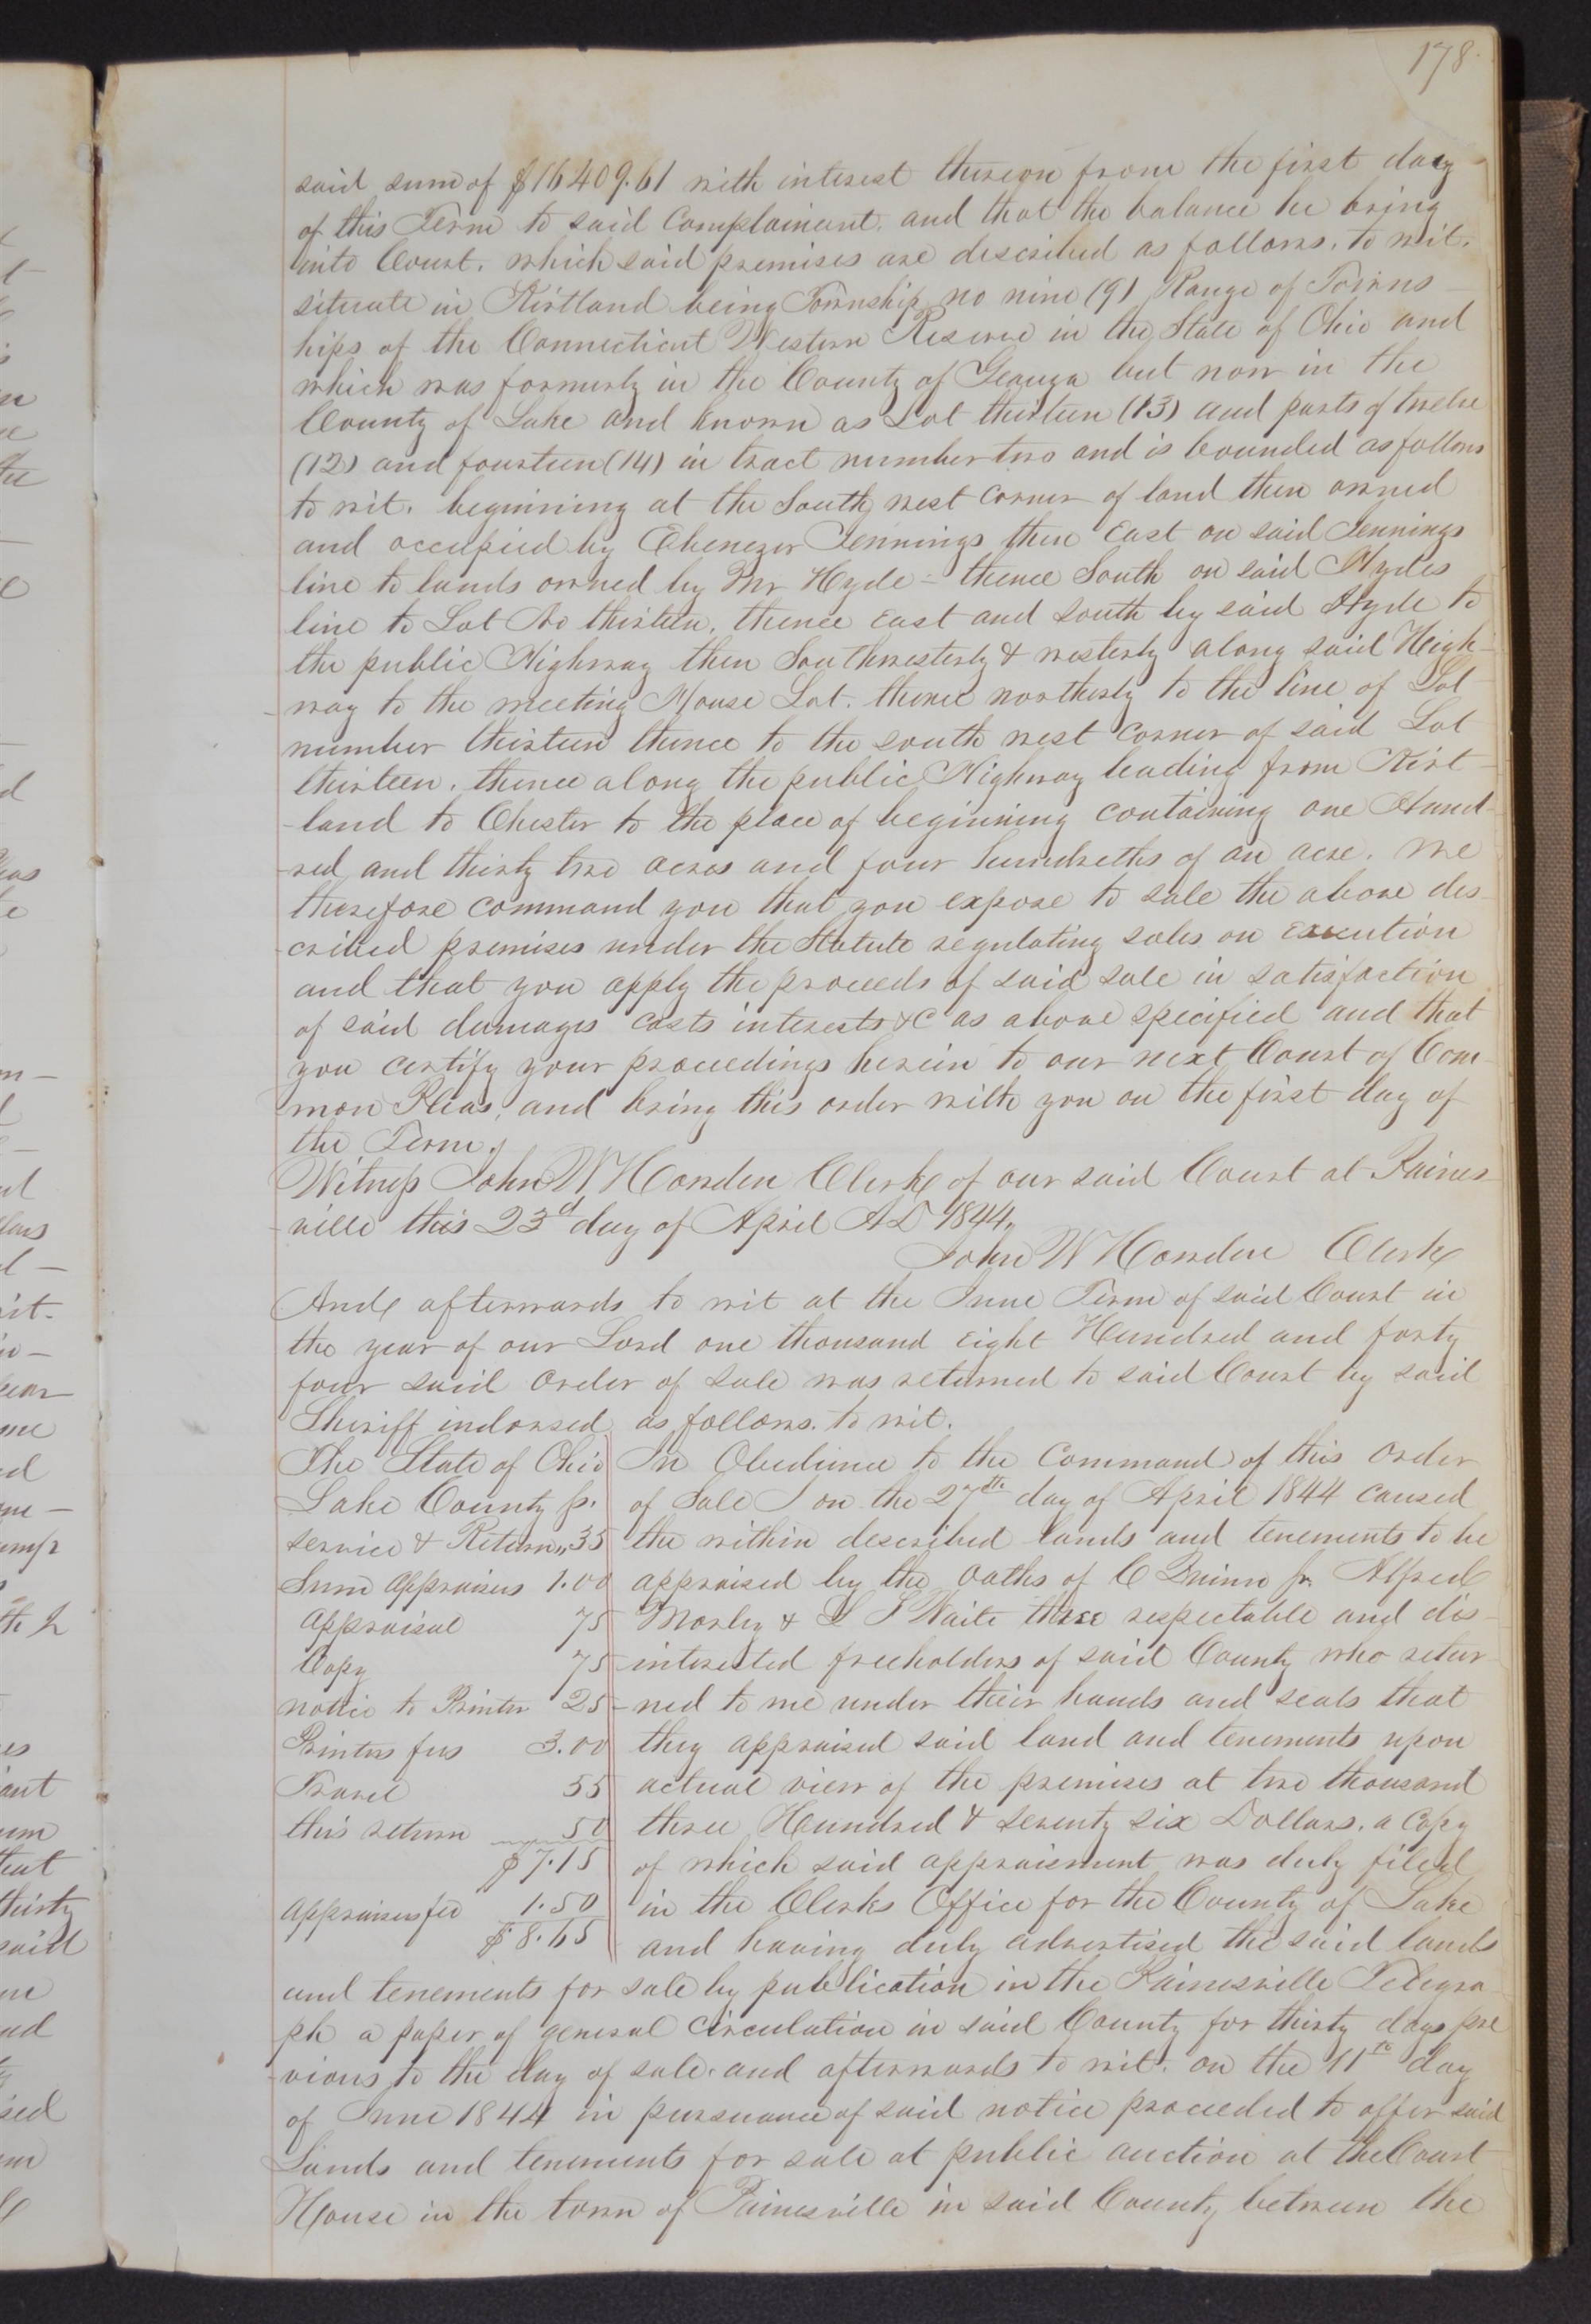 178.
said sum of $16409.61 with interest thereon from the first day
of this Term to said Complainant. and that the balance he bring
into Court. which said premises are described as follows. to wit.
situate in Kirtland being Township no nine (9) Range of Towns-
hips of the Connecticut Western Reserve in the State of Ohio and
which was formerly in the County of Geauga but now in the
County of Lake and known as Lot thirteen (13) and parts of twelve
(12) and fourteen (14) in tract number two and is bounded as follows
to wit. beginning at the South west corner of land then owned
and occupied by Ebenezer Jennings then East on said Jennings
line to lands owned by Mr Hyde - thence South on said Hydes
line to Lot No thirteen. thence east and south by said Hyde to
the public Highway then Southwesterly & westerly along said High-
-way to the meeting House Lot. thence northerly to the line of Lot
number thirteen thence to the south west corner of said Lot
thirteen. thence along the public Highway leading from Kirt-
-land to Chester to the place of beginning containing one Hund-
-red and thirty two acres and four hundreths of an acre. We
therefore command you that you expose to sale the above des-
-cribed premises under the Statute regulating sales on execution
and that you apply the proceeds of said sale in satisfaction
of said damages costs interests &c as above specified and that
you certify your proceedings herein to our next Court of Com-
mon Pleas, and bring this order with you on the first day of
the Term.
Witness John W Howden Clerk of our said Court at Paines-
-ville this 23d day of April AD 1844,
John W Howden Clerk
And afterwards to wit at the June Term of said Court in
the year of our Lord one thousand Eight Hundred and forty
four said order of Sale was returned to said Court by said
Sheriff indorsed as follows. to wit.
The State of Ohio
Lake County ss.
Service & Return ,,35
Sum Appraisers 1.00
Appraisal 75
Copy 75
notice to Printer 25
Printers fees 3.00
Travel 55
this return 50
$7.15
Appraisers fee 1.50
$8.65
In Obedience to the Command of this order
of Sale I on the 27th day of April 1844 caused
the within described lands and tenements to be
appraised by the oaths of C Quinn Jr. Alfred
Morley & S S Waite three respectable and dis-
interested freeholders of said County who retur-
-ned to me under their hands and seals that
they appraised said land and tenements upon
actual view of the premises at two thousand
three Hundred & seventy six Dollars. a Copy
of which said appraisment was duly filed
in the Clerks Office for the County of Lake
and having duly advertised the said lands
and tenements for sale by publication in the Painesville Telegra-
ph a paper of general circulation in said County for thirty days pre
-vious to the day of sale. and afterwards to wit. on the 11th day
of June 1844 in pursuance of said notice proceeded to offer said
Lands and tenements for sale at public auction at the Court
House in the town of Painesville in said County between the